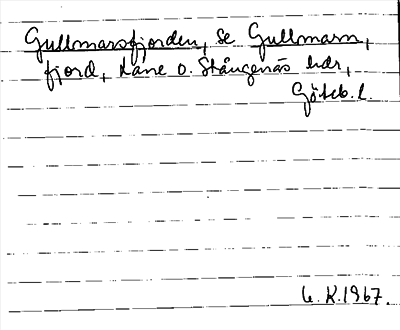 Gullmarsfjorden, se Gullmarn,
fjord, Lane o. Stångenäs hdr,
Göteb. l.
K. 1967.